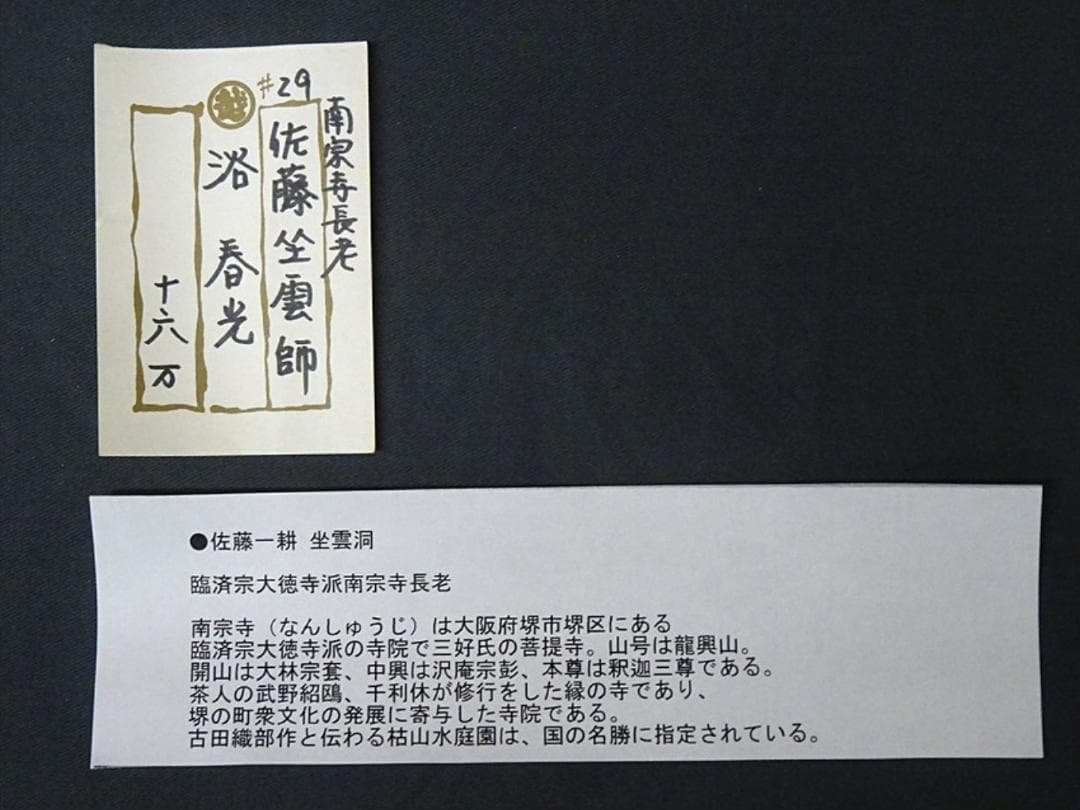 #29
南宗寺長老
佐藤坐雲師
浴 春光
十六万
●佐藤一耕 坐雲洞
臨済宗大徳寺派南宗寺長老
南宗寺（なんしゅうじ）は大阪府堺市堺区にある
臨済宗大徳寺派の寺院で三好氏の菩提寺。山号は龍興山。
開山は大林宗套、中興は沢庵宗彭、本尊は釈迦三尊である。
茶人の武野紹鴎、千利休が修行をした縁の寺であり、
堺の町衆文化の発展に寄与した寺院である。
古田織部作と伝わる枯山水庭園は、国の名勝に指定されている。